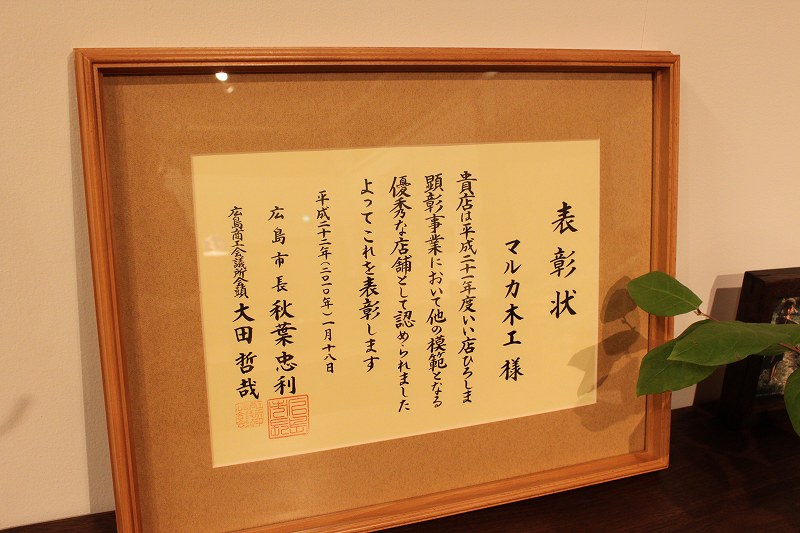 表彰状
マルカ木工 様
貴店は平成二十一年度いい店ひろしま
顕彰事業において他の模範となる
優秀な店舗として認められました
よってこれを表彰します
平成二十二年(二〇一〇年)一月十八日
広島市長 秋葉忠利
広島商工会議所会頭 大田哲哉